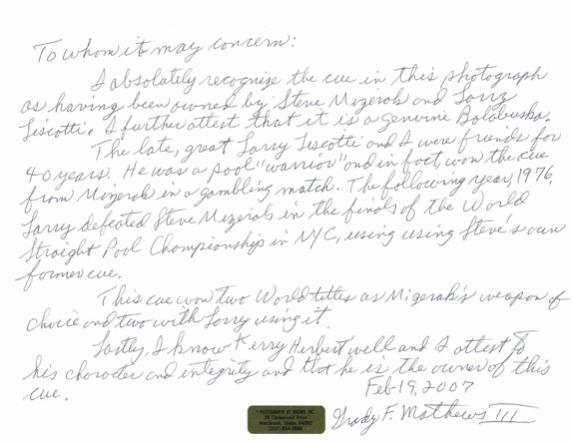 To whom it may concern:
I absolutely recognize the cue in this photograph
as having been owned by Steve Mizerak and Larry
Liscotti. I further attest that it is a genuine Balabuska.
The late, great Larry Liscotti and I were friends for
40 years. He was a pool "warrior" and in fact, won the cue
from Mizerak in a gambling match. The following year, 1976,
Larry defeated Steve Mizerak in the finals of the World
Straight Pool Championship in NYC, using using Steve's own
former cue.
This cue won two World titles as Mizerak's weapon of
choice and two with Larry using it.
Lastly, I know Kerry Herbert well and I attest to
his character and integrity and that he is the owner of this
cue.
Feb 19, 2007
Grady F. Mathews III